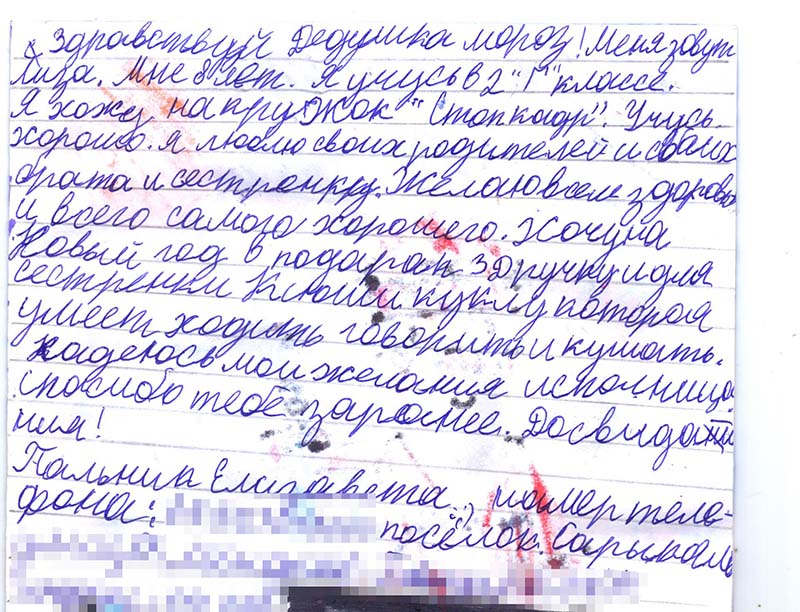 Здравствуй Дедушка мороз! Меня зовут
Лиза. Мне 8 лет. Я учусь в 2 "Г" классе.
Я хожу на кружок "Стопкадр". Учусь
хорошо. Я люблю своих родителей и своих
брата и сестренку. Желаю всем здоровья
и всего самого хорошего. Хочу на
Новый год в подарак 3D ручку и для
сестренки Ксюши куклу которая
умеет ходить говорить и кушать.
Надеюсь мои желания исполница.
спосибо тебе заранее. Досвидати
ния!
Пальник Елизавета номер теле-
фона:
посёлок. Сарыкамы